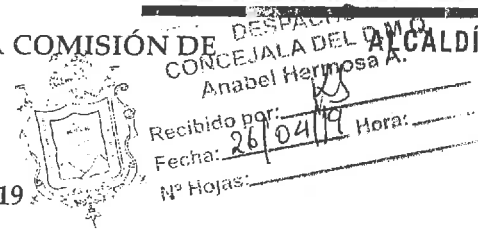 A COMISIÓN DE
ALCALDÍ
DESPACHO
CONCEJALA DEL D.M.Q.
Anabel Hermosa A.
Recibido por:
Fecha: 26/04/19 Hora:
Nº Hojas:
19